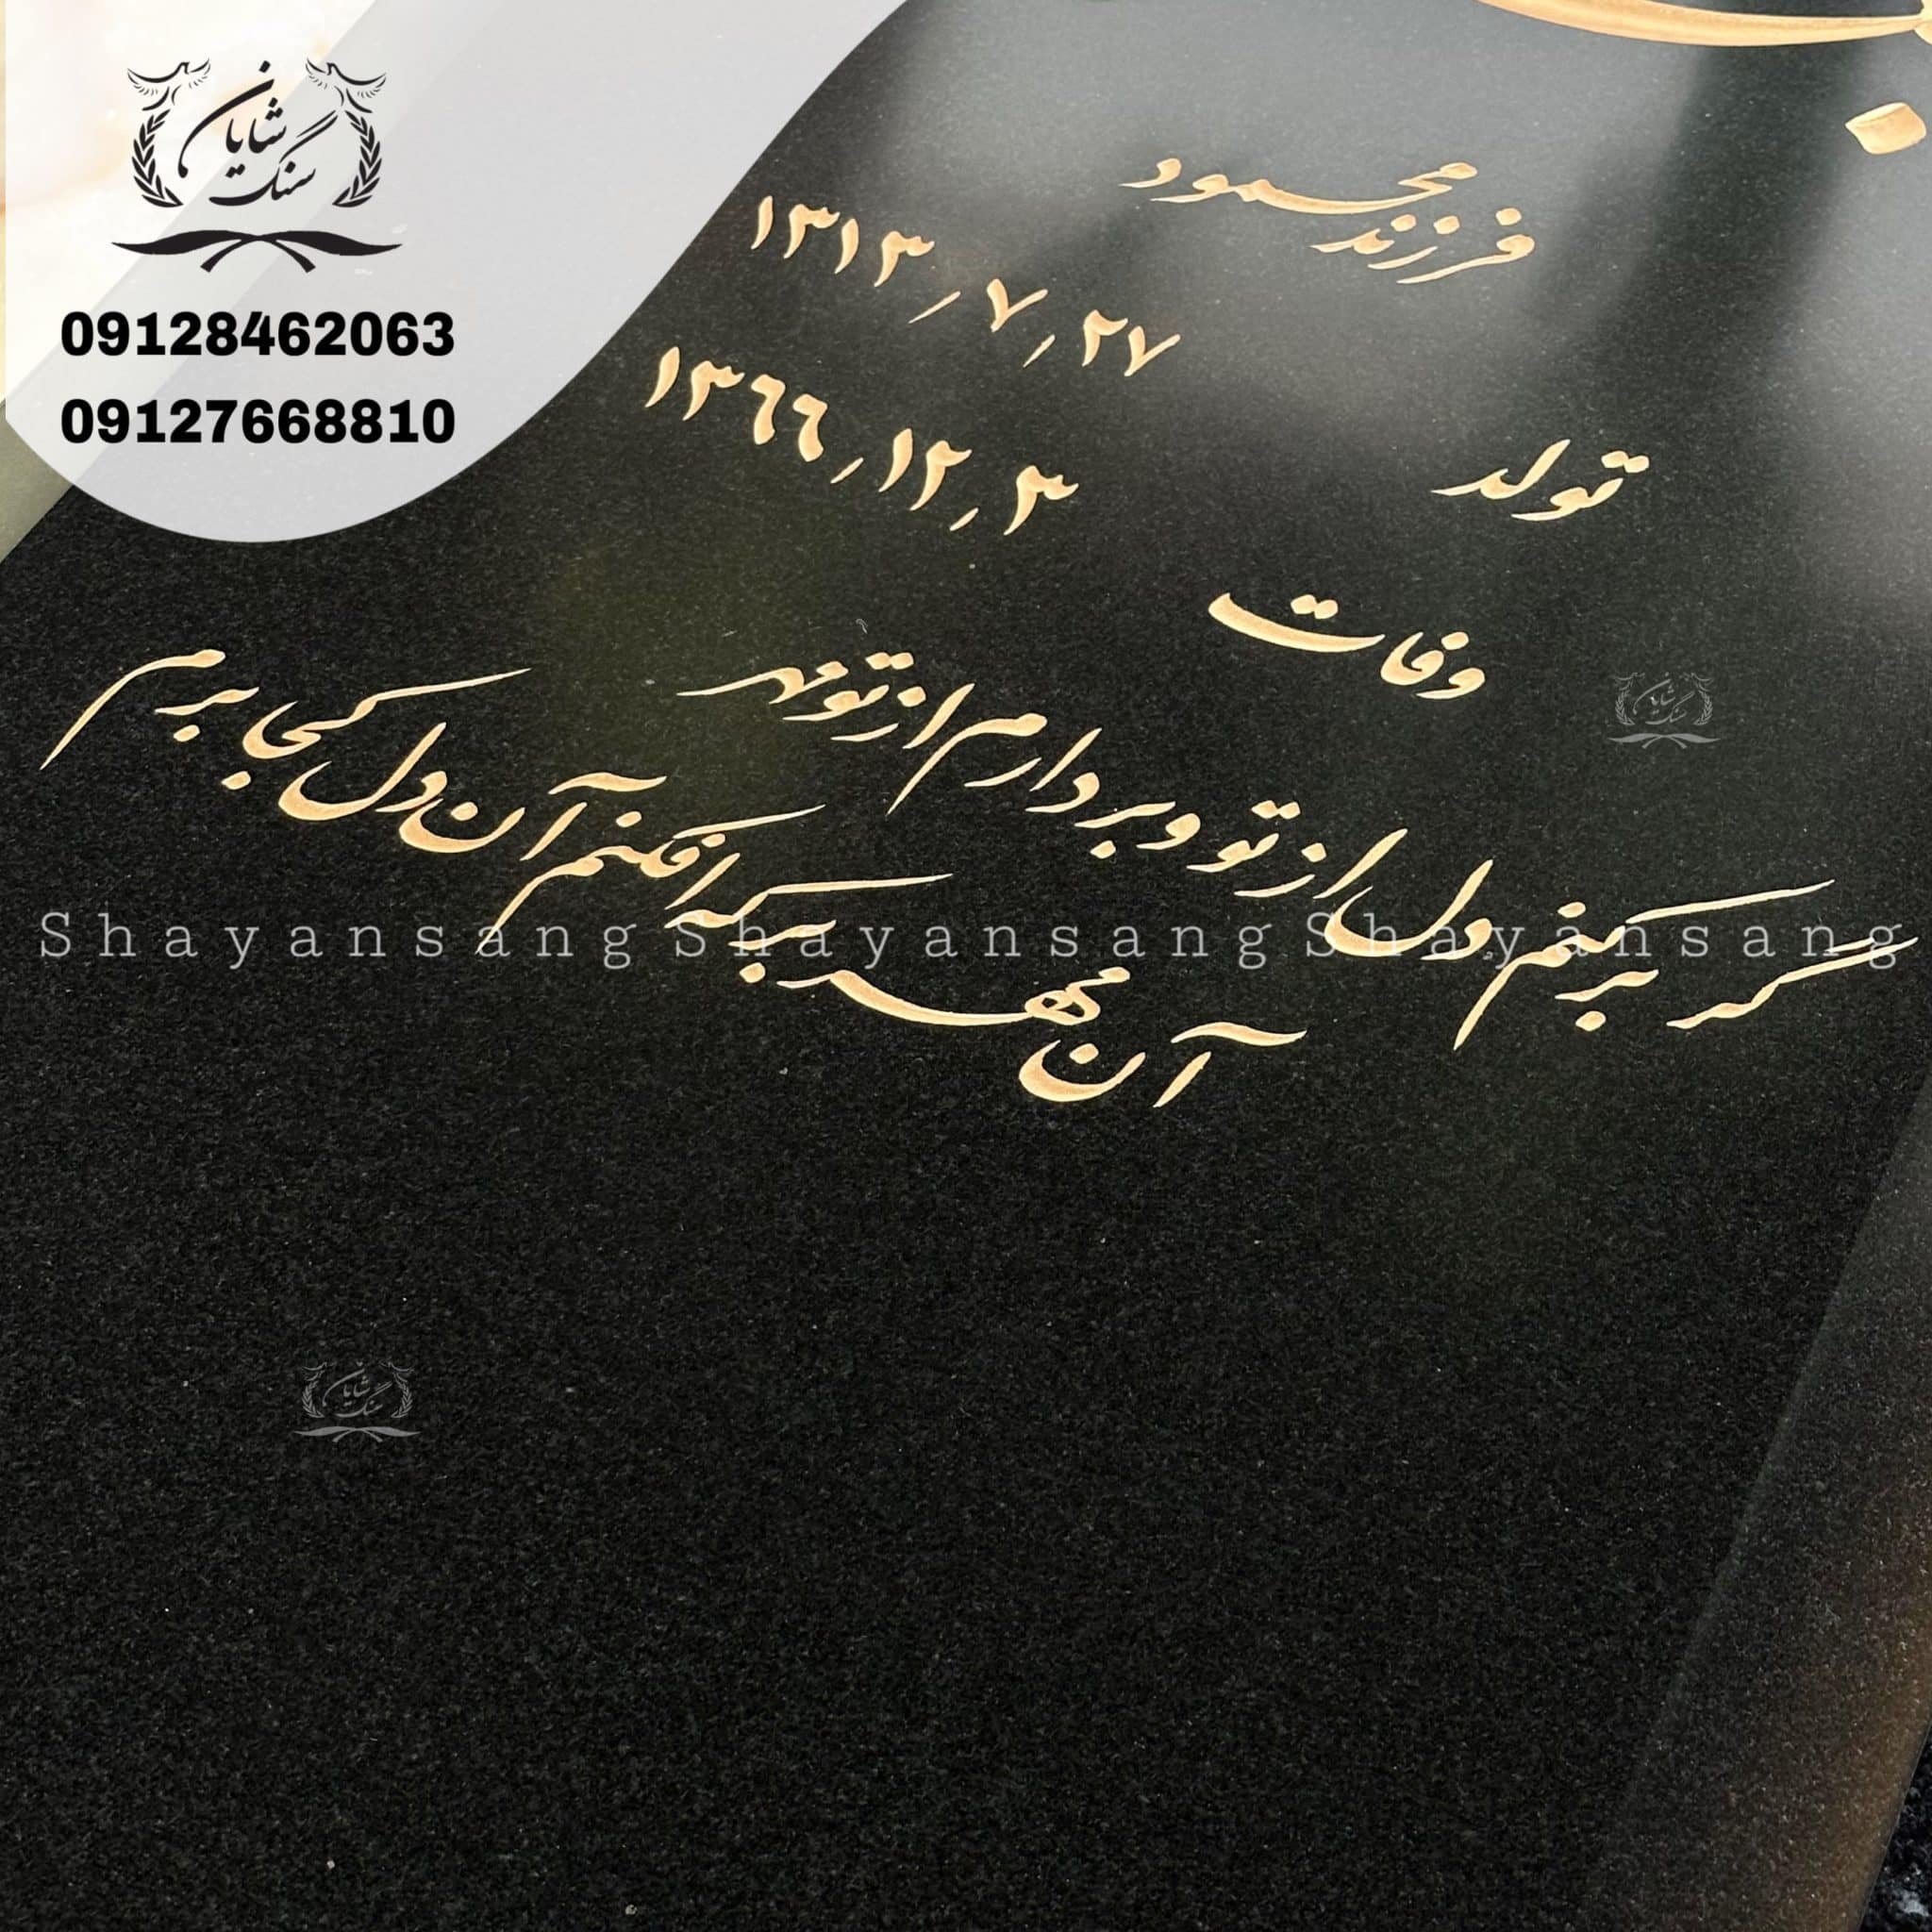 شایان
سنگ
09128462063
09127668810
فرزند محمود
تولد ۱۳۱۳/۷/۲۷
وفات ۱۳۶۶/۱۲/۳
گر برکنم دل از تو و بردارم از تو مهر
آن مهر بر که افکنم آن دل کجا برم
Shayansang Shayansang Shayansang
شایان
سنگ
شایان
سنگ